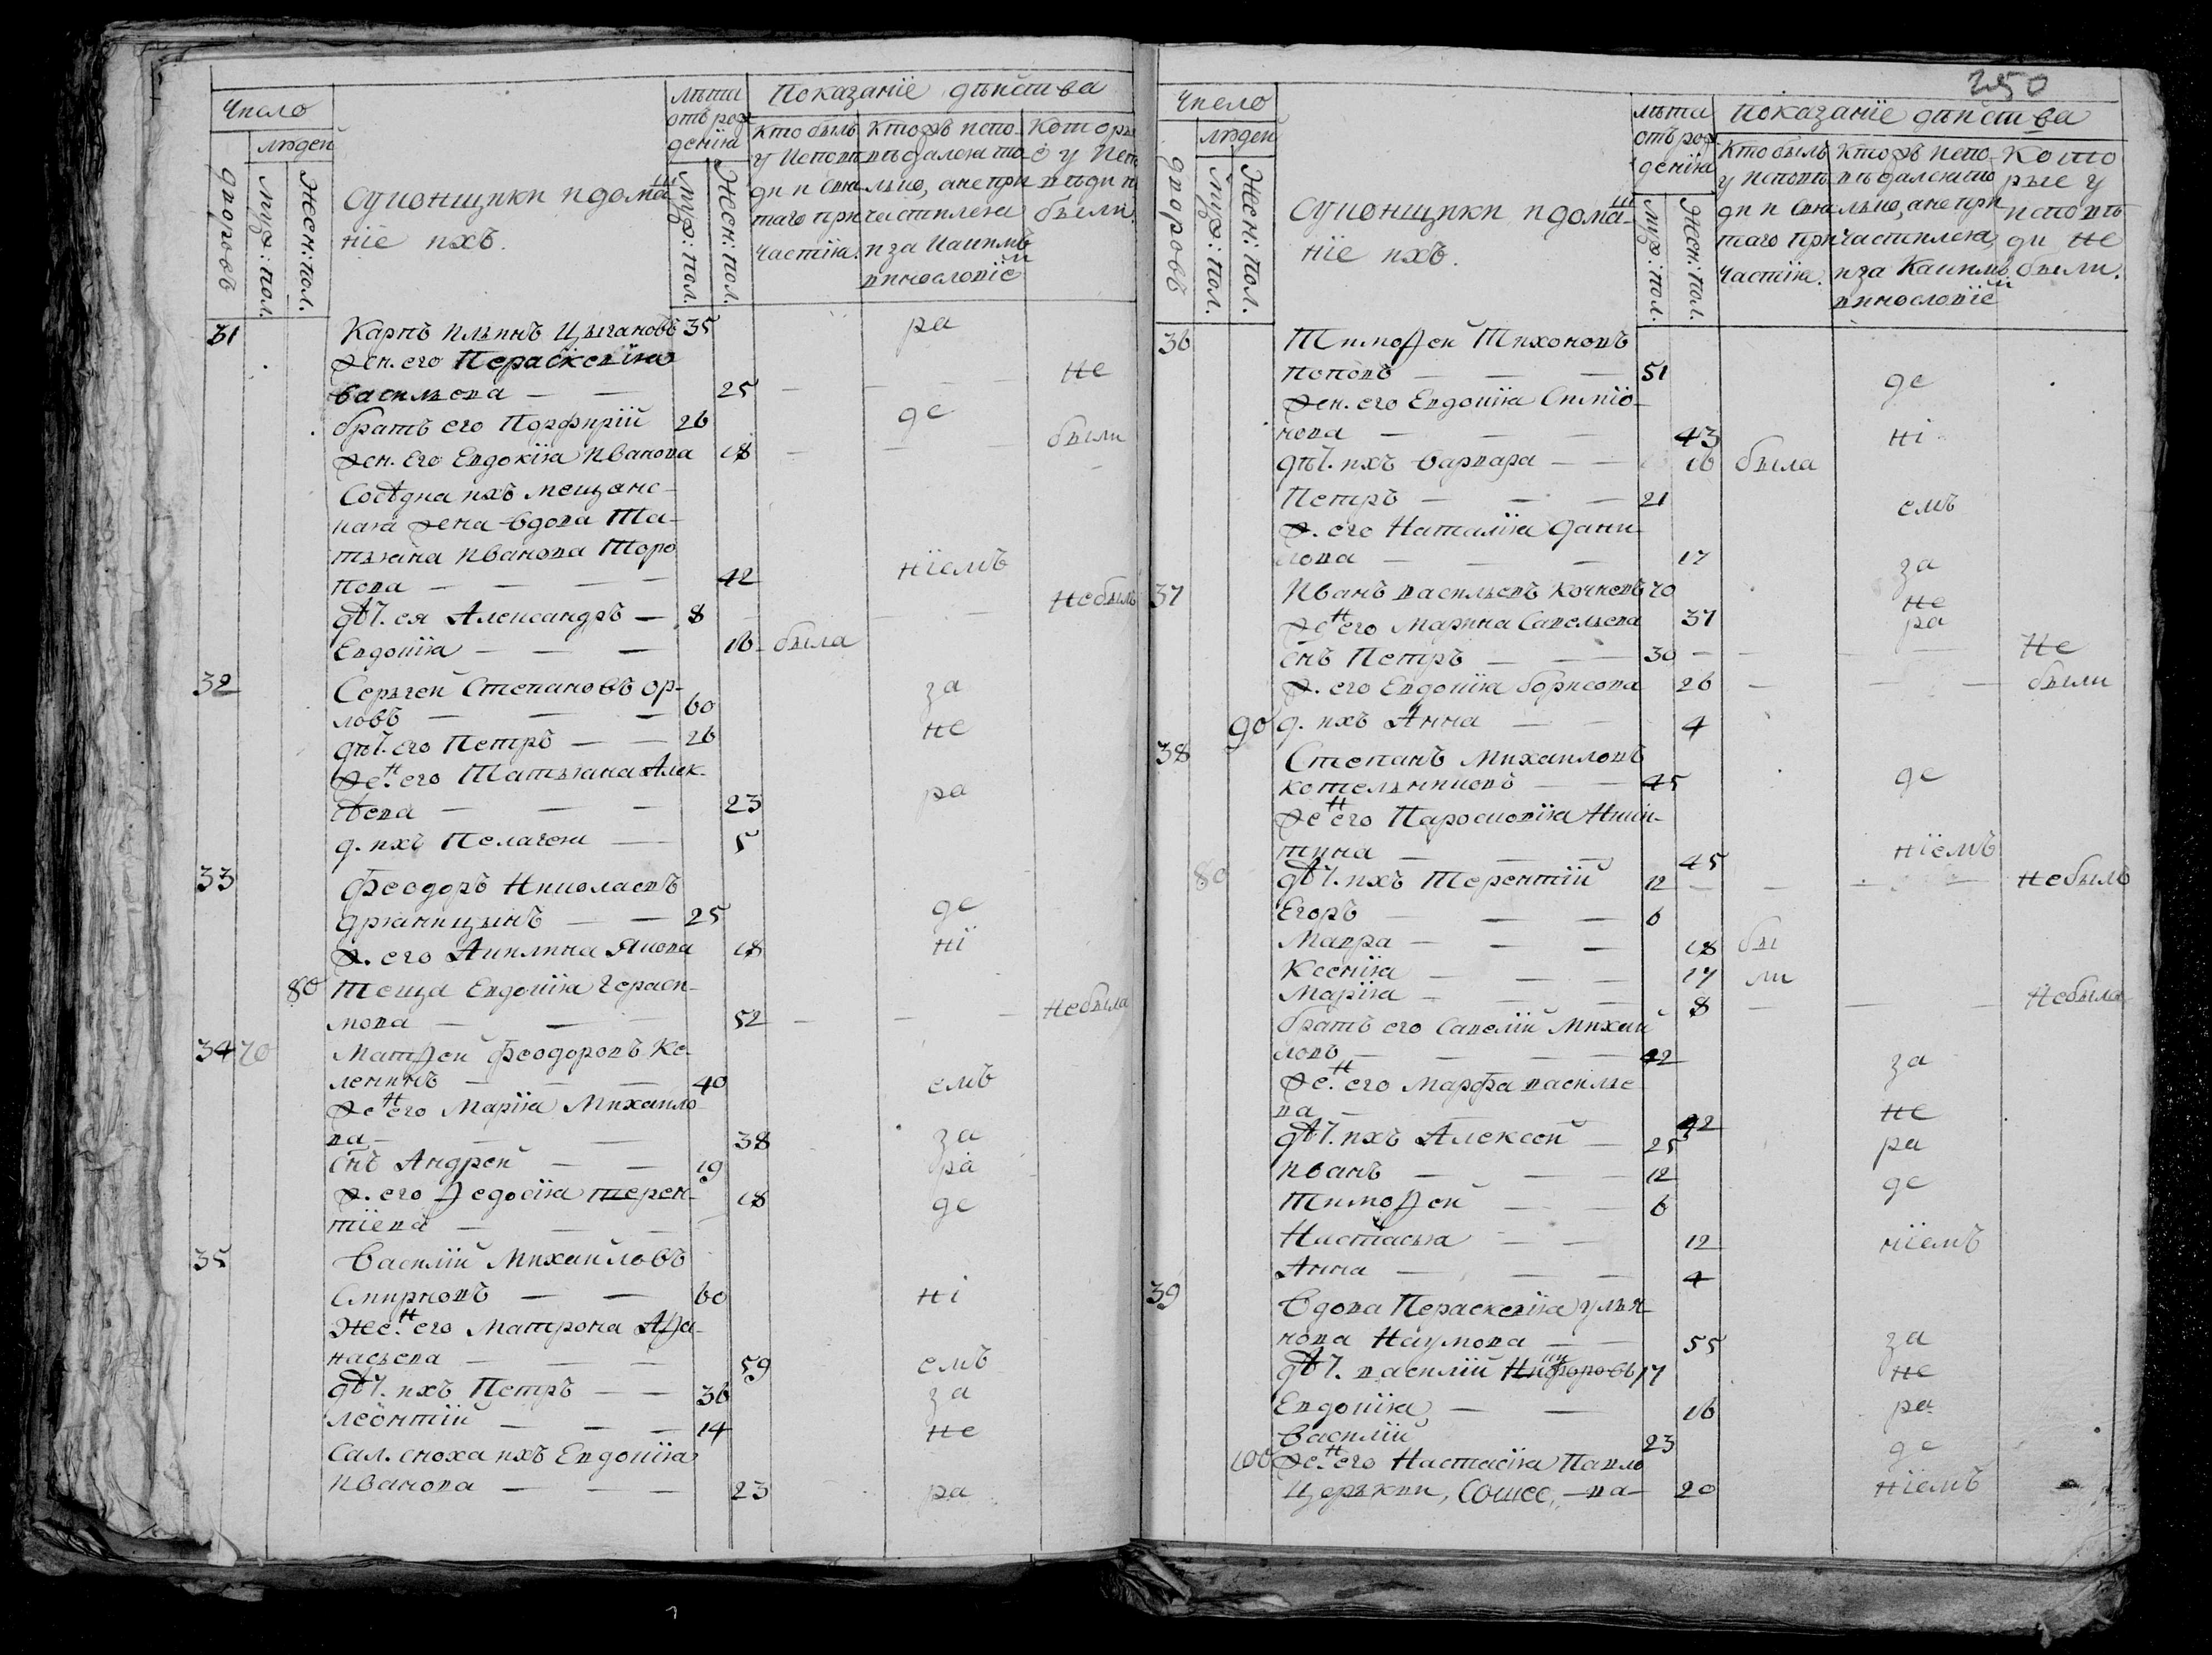 Число
людей
дворовъ
Муж: пол.
Жен: пол.
суконщики и домаш
ніе ихъ.
лѣта
отъ рож
денія
Муж: пол.
Жен: пол.
Показаніе дѣйства
Кто былъ
у исповѣ
ди и свя
таго при
частія.
Ктожъ испо-
вѣдался то
лько, а не при
частился
и за какимъ
винословіем
Которы
е у испо
вѣди н
были.
31 Карпъ Ильинъ Цыгановъ 35 ра
жен. его Пераскевія Не
васильева — — 25 —
братъ его Порфирій 26 де
жен. его Евдокія Иванова 18 — были
Сосѣдка ихъ мещанс-
кая жена вдова Та-
тьяна Иванова Торо
пова — — — — 42 ніемъ
дѣт. ея Александръ — 8 Небылъ
Евдокія — — — 16 была
32 Сергей Степановъ ор- за
ловъ — — — 60
дѣт. его Петръ — — 26 не
жен его Татьяна Алек-
сѣева — — — 23 ра
д. ихъ Пелагея — 5
33 Феодоръ Николаевъ
дряницынъ — — 25 де
ж. его Акилина Якова 18 ні
80 Теща Евдокія Гераси-
мова — — — 52 — — — Небыла
34 70 Матѳей Феодоровъ Ке-
ленинъ — — — 40 емъ
жен его Марія Михайло-
ва — — — 38 за
снъ Андрей — — 19 ра
ж. его Ѳедосія терен- 18 де
тіева — — —
35 Василій Михайловъ
Смирновъ — — 60 ні
Жен. его Матрона Аѳа-
насьева — — — 59 емъ
дѣт. ихъ Петръ — — 36 за
леонтій — — — 14 не
Сал. сноха ихъ Евдокія
Иванова — — — 23 ра
250
Число
людей
дворовъ
Муж: пол.
Жен: пол.
суконщики и домаш
ніе ихъ.
лѣта
отъ рож
денія
Муж: пол.
Жен: пол.
показаніе дѣйства
Кто былъ
у исповѣ
ди и свя
таго при
частія.
Ктожъ испо-
вѣдался то
лько, а не при
частился,
и за какимъ
винословіем
Кото
рые у
исповѣ
ди не
были.
36 Тимоѳей Тихоновъ
поповъ — — — 51 де
жен. его Евдокія Симіо-
нова — — — 43 ні
дѣт. ихъ варвара — — 16 была
Петръ — — — 21 емъ
ж. его Наталія дани-
лова — — — 17 за
37 Иванъ васильевъ Кочневъ 70 не
жен его Марина Савельева 37 ра
снъ Петръ — — — 30 — — — — Не
ж. его Евдокія борисова 26 — — — были
90 д. ихъ Анна — — 4
38 Степанъ Михаиловъ
котельниковъ — — 45 де
жен его Паросковія Ники-
тина — — — 45 ніемъ
80 дѣт. ихъ Терентій 12 — — — — Небылъ
Егоръ — — — 6
Мавра — — — 18 бы
Ксенія — — — 17 ли
Марія — — — 8 — — — Небыла
братъ его Савелій Михай
ловъ — — — — 42 за
жен. его Марфа василье
ва — 42 не
дѣт. ихъ Алексей — 25 ра
Иванъ — — — 12 де
Тимоѳей — — 6
Настасья — — 12 ніемъ
Анна — — — 4
39 Вдова Пераскевія улья-
нова Наумова — — 55 за
дѣт. василій Никифоровъ 17 не
Евдокія — — 16 ра
Василій 23 де
100 жен. его Настасія Павло
Церкви, — ва — 20 ніемъ